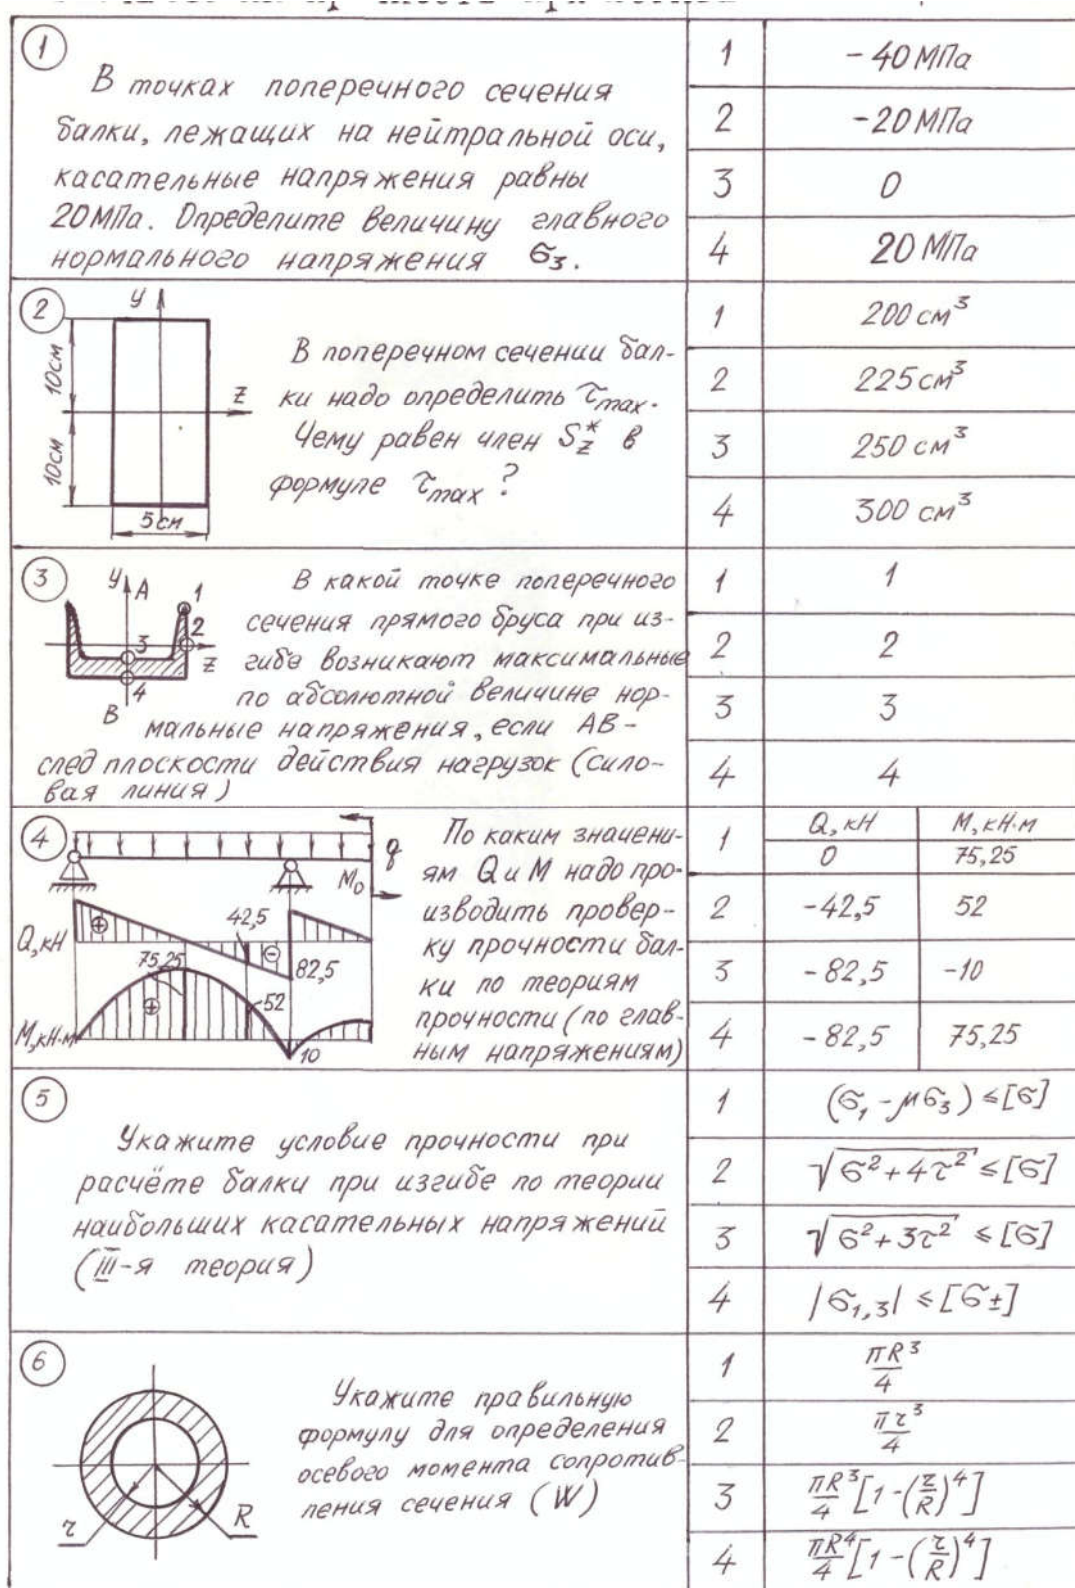 1
В точках поперечного сечения
балки, лежащих на нейтральной оси,
касательные напряжения равны
20 МПа. Определите величину главного
нормального напряжения σ₃.
1 -40 МПа
2 -20 МПа
3 0
4 20 МПа
2
y
10см
10см
z
5см
В поперечном сечении бал-
ки надо определить τmax.
Чему равен член S*z в
формуле τmax?
1 200 см³
2 225 см³
3 250 см³
4 300 см³
3
y A
1
2
3
z
4
B
В какой точке поперечного
сечения прямого бруса при из-
гибе возникают максимальные
по абсолютной величине нор-
мальные напряжения, если АВ-
след плоскости действия нагрузок (сило-
вая линия)
1 1
2 2
3 3
4 4
4
q
M₀
Q, кН
+
42,5
−
82,5
75,25
+
52
М, кН·м
10
По каким значени-
ям Q и М надо про-
изводить провер-
ку прочности бал-
ки по теориям
прочности (по глав-
ным напряжениям)
Q, кН М, кН·м
1 0 75,25
2 -42,5 52
3 -82,5 -10
4 -82,5 75,25
5
Укажите условие прочности при
расчёте балки при изгибе по теории
наибольших касательных напряжений
(III-я теория)
1 (σ₁ - μσ₃) ≤ [σ]
2 √σ² + 4τ² ≤ [σ]
3 √σ² + 3τ² ≤ [σ]
4 |σ₁,₃| ≤ [σ±]
6
r
R
Укажите правильную
формулу для определения
осевого момента сопротив-
ления сечения (W)
1 πR³/4
2 πr³/4
3 πR³/4 [1 - (r/R)⁴]
4 πR⁴/4 [1 - (r/R)⁴]